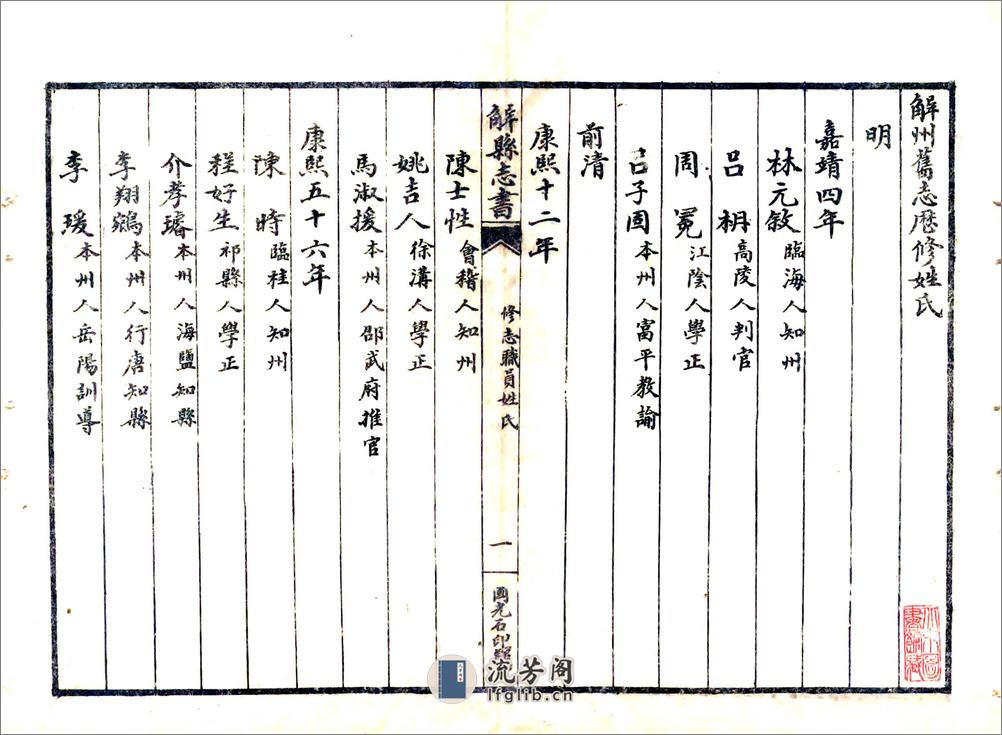 解州舊志歷修姓氏
明
嘉靖四年
林元敘 臨海人知州
呂枏 高陵人判官
周冕 江陰人學正
呂子固 本州人富平教諭
前清
康熙十二年
解縣志書
修志職員姓氏
一
國光石印館
陳士性 會稽人知州
姚吉人 徐溝人學正
馬淑援 本州人邵武府推官
康熙五十六年
陳時 臨桂人知州
程好生 祁縣人學正
介孝璿 本州人海鹽知縣
李翔鵷 本州人行唐知縣
李瑗 本州人岳陽訓導
流芳阁
lfglib.cn